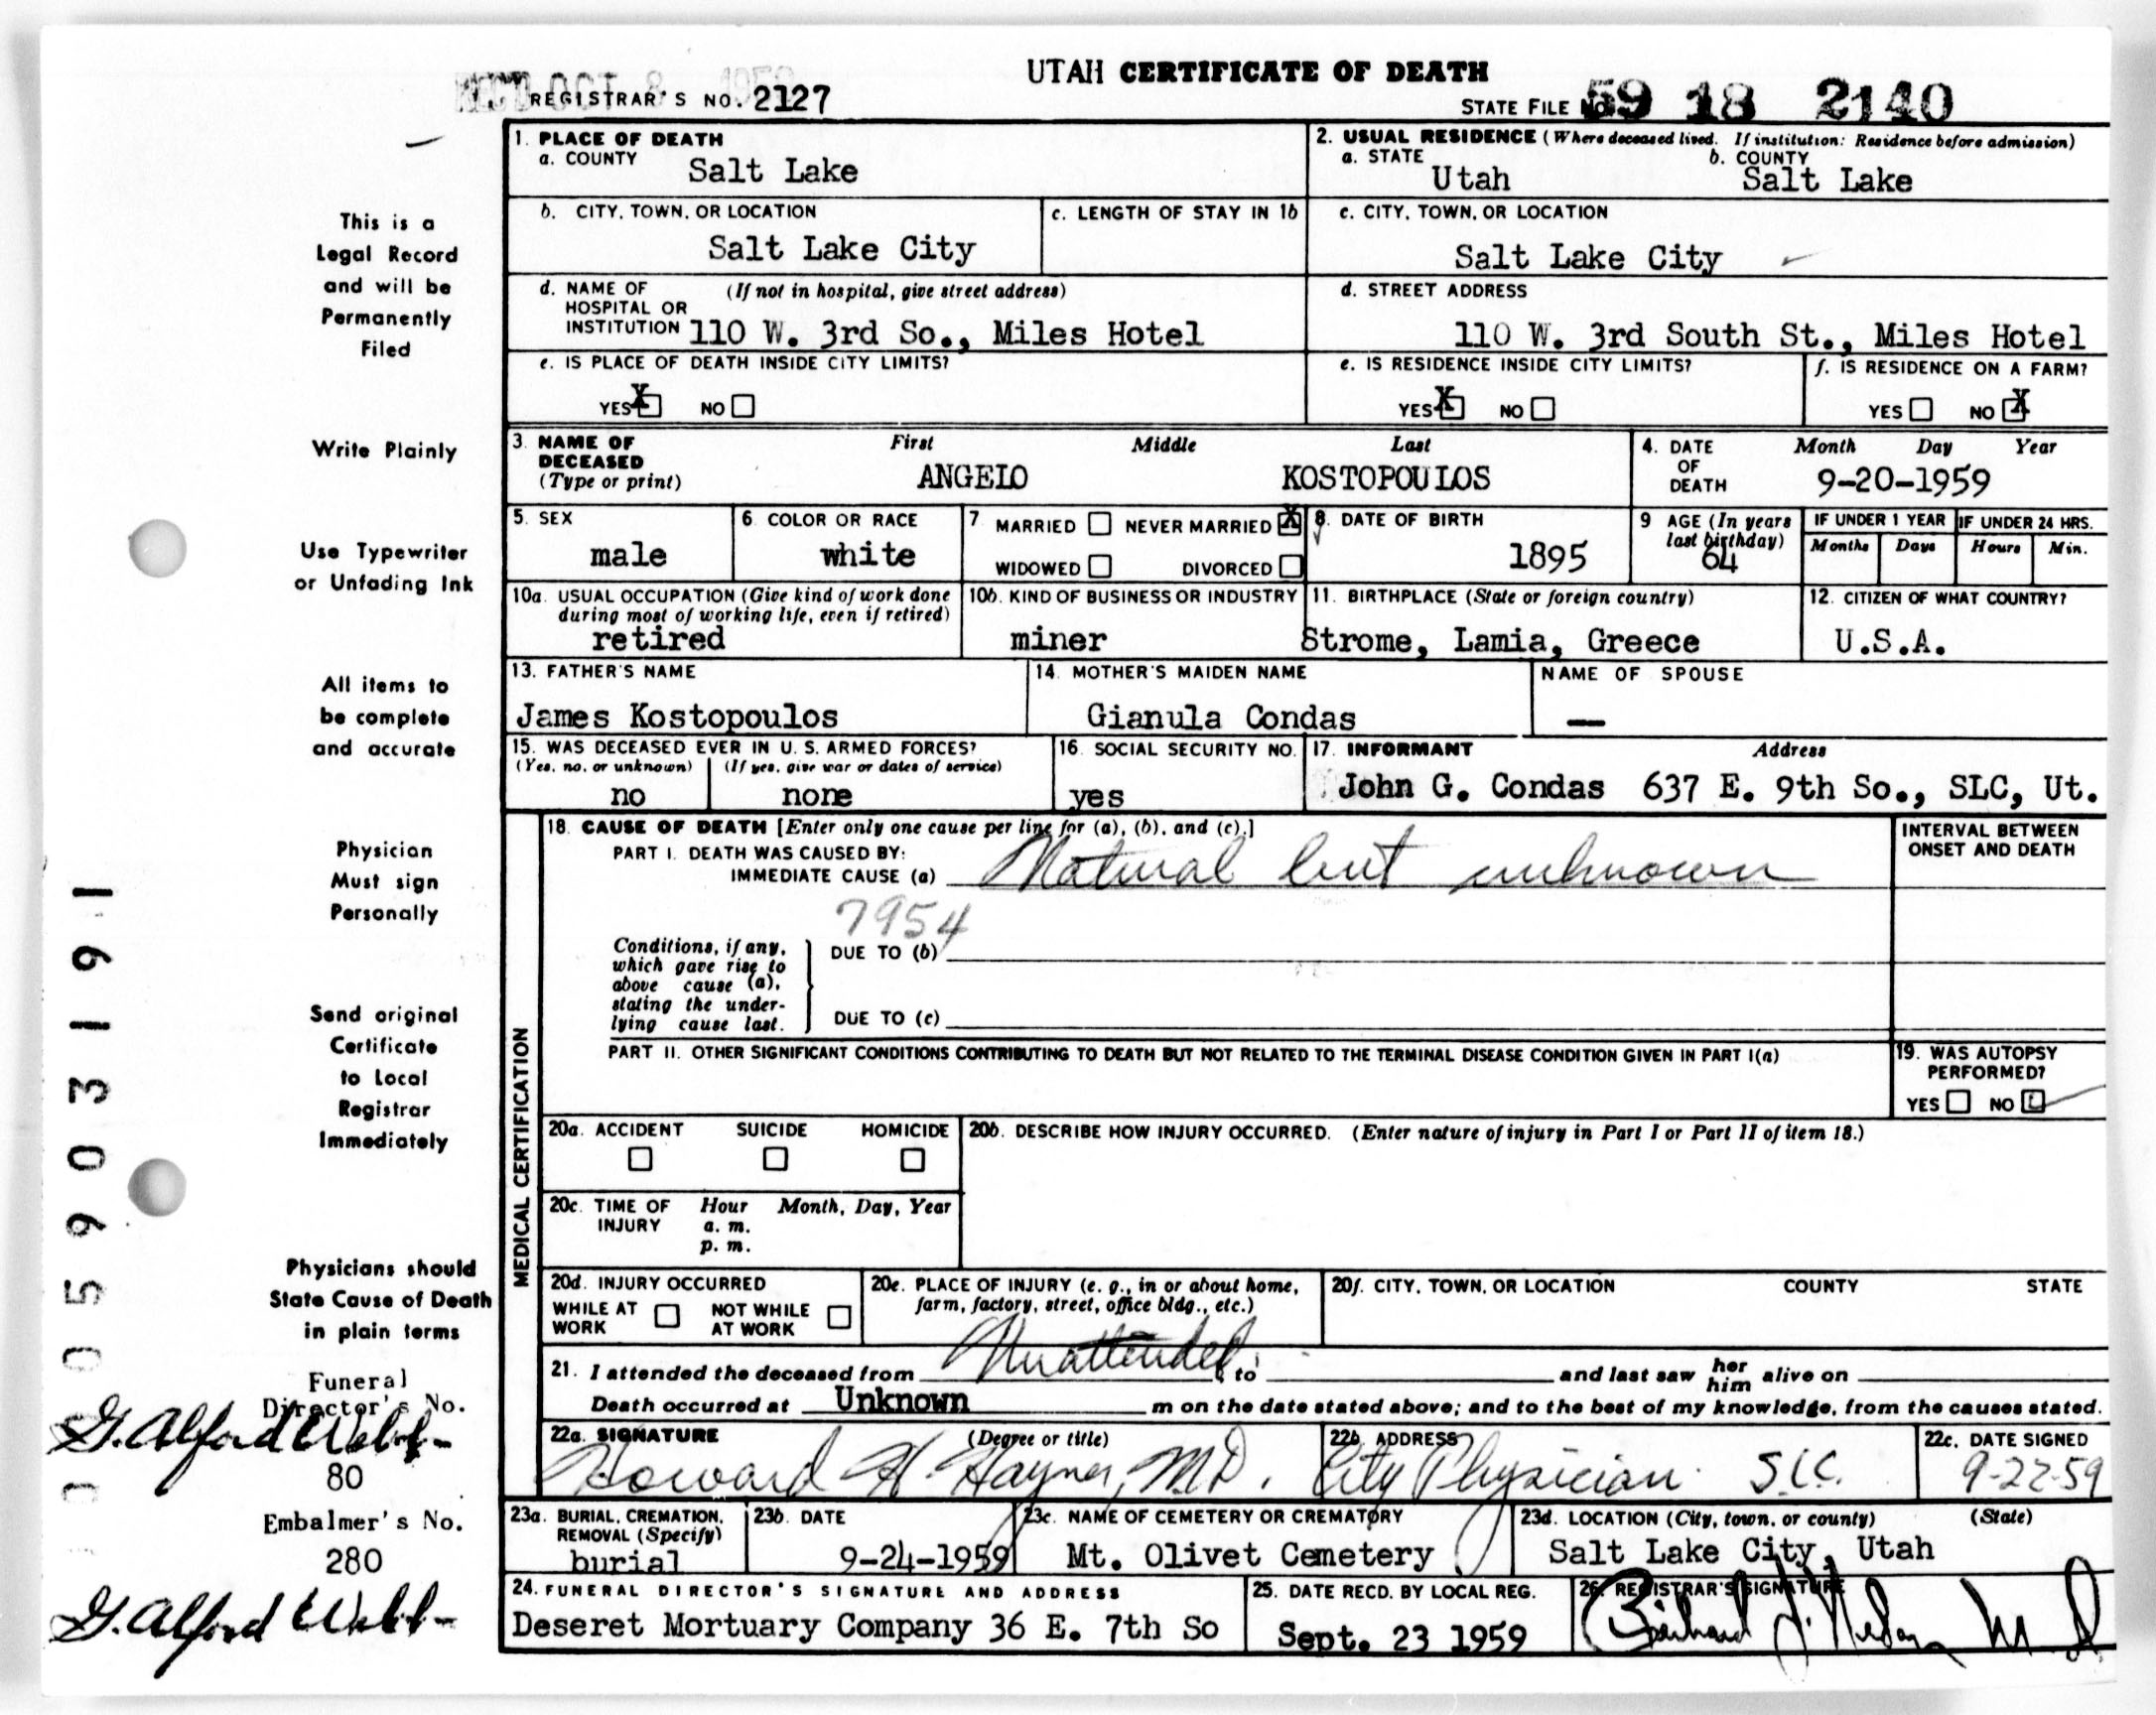 UTAH CERTIFICATE OF DEATH
REC'D OCT 8 1959
REGISTRAR'S NO. 2127
STATE FILE No. 59 18 2140
1. PLACE OF DEATH
a. COUNTY
Salt Lake
2. USUAL RESIDENCE (Where deceased lived. If institution: Residence before admission)
a. STATE b. COUNTY
Utah Salt Lake
b. CITY, TOWN, OR LOCATION
Salt Lake City
c. LENGTH OF STAY IN 1b
c. CITY, TOWN, OR LOCATION
Salt Lake City
d. NAME OF HOSPITAL OR INSTITUTION (If not in hospital, give street address)
110 W. 3rd So., Miles Hotel
d. STREET ADDRESS
110 W. 3rd South St., Miles Hotel
e. IS PLACE OF DEATH INSIDE CITY LIMITS?
YES X NO
e. IS RESIDENCE INSIDE CITY LIMITS?
YES X NO
f. IS RESIDENCE ON A FARM?
YES NO X
3. NAME OF DECEASED (Type or print)
First Middle Last
ANGELO KOSTOPOULOS
4. DATE OF DEATH
Month Day Year
9-20-1959
5. SEX
male
6. COLOR OR RACE
white
7 MARRIED NEVER MARRIED X
WIDOWED DIVORCED
8. DATE OF BIRTH
1895
9 AGE (In years last birthday)
64
IF UNDER 1 YEAR
Months Days
IF UNDER 24 HRS.
Hours Min.
10a. USUAL OCCUPATION (Give kind of work done
during most of working life, even if retired)
retired
10b. KIND OF BUSINESS OR INDUSTRY
miner
11. BIRTHPLACE (State or foreign country)
Strome, Lamia, Greece
12. CITIZEN OF WHAT COUNTRY?
U.S.A.
13. FATHER'S NAME
James Kostopoulos
14. MOTHER'S MAIDEN NAME
Gianula Condas
NAME OF SPOUSE
—
15. WAS DECEASED EVER IN U. S. ARMED FORCES?
(Yes, no, or unknown) (If yes, give war or dates of service)
no none
16. SOCIAL SECURITY NO.
yes
17. INFORMANT Address
John G. Condas 637 E. 9th So., SLC, Ut.
MEDICAL CERTIFICATION
18. CAUSE OF DEATH [Enter only one cause per line for (a), (b), and (c).]
PART I. DEATH WAS CAUSED BY:
IMMEDIATE CAUSE (a) Natural but unknown
7954
Conditions, if any,
which gave rise to
above cause (a),
stating the under-
lying cause last.
DUE TO (b)
DUE TO (c)
INTERVAL BETWEEN
ONSET AND DEATH
PART II. OTHER SIGNIFICANT CONDITIONS CONTRIBUTING TO DEATH BUT NOT RELATED TO THE TERMINAL DISEASE CONDITION GIVEN IN PART I(a)
19. WAS AUTOPSY
PERFORMED?
YES NO
20a. ACCIDENT SUICIDE HOMICIDE
20b. DESCRIBE HOW INJURY OCCURRED. (Enter nature of injury in Part I or Part II of item 18.)
20c. TIME OF INJURY
Hour Month, Day, Year
a. m.
p. m.
20d. INJURY OCCURRED
WHILE AT WORK NOT WHILE AT WORK
20e. PLACE OF INJURY (e. g., in or about home,
farm, factory, street, office bldg., etc.)
20f. CITY, TOWN, OR LOCATION COUNTY STATE
21. I attended the deceased from Unattended, to and last saw her him alive on
Death occurred at Unknown m on the date stated above; and to the best of my knowledge, from the causes stated.
22a. SIGNATURE (Degree or title)
Howard H. Hayner, M.D.
22b. ADDRESS
City Physician. S.L.C.
22c. DATE SIGNED
9-22-59
23a. BURIAL, CREMATION,
REMOVAL (Specify)
burial
23b. DATE
9-24-1959
23c. NAME OF CEMETERY OR CREMATORY
Mt. Olivet Cemetery
23d. LOCATION (City, town, or county) (State)
Salt Lake City, Utah
24. FUNERAL DIRECTOR'S SIGNATURE AND ADDRESS
Deseret Mortuary Company 36 E. 7th So
25. DATE RECD. BY LOCAL REG.
Sept. 23 1959
26. REGISTRAR'S SIGNATURE
This is a
Legal Record
and will be
Permanently
Filed
Write Plainly
Use Typewriter
or Unfading Ink
All items to
be complete
and accurate
Physician
Must sign
Personally
Send original
Certificate
to Local
Registrar
Immediately
Physicians should
State Cause of Death
in plain terms
Funeral
Director's No.
G. Alford Webb
80
Embalmer's No.
280
G. Alford Webb